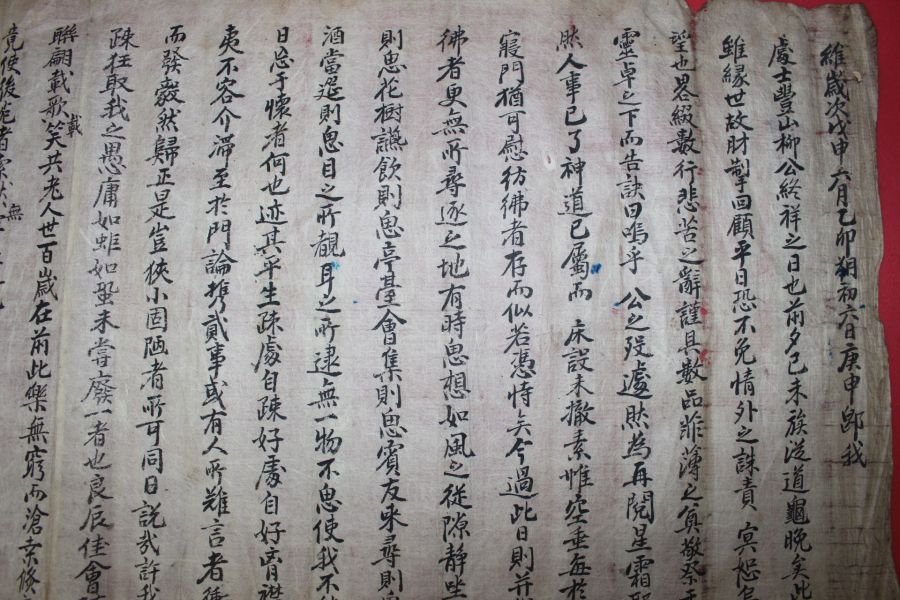 維歲次戊申六月乙卯朔初六日庚申卽我
處士豐山柳公終祥之日也前夕己未族從道龜晚矣此
雖緣世故財制回顧平日恐不免情外之誅責 冥恕
望也畧綴數行悲苦之辭謹具數品菲薄之奠敬祭于
靈卓之下而告訣曰嗚乎 公之歿遽然為再閱星霜
然人事已了神道已屬而 床設未撤素帷空垂每於
寢門猶可慰彷彿者存而似若憑恃矣今過此日則并
彿者更無所尋逐之地有時思想如風之從隙靜坐
則思花樹讌飲則思亭臺會集則思賓友來尋則
酒當筵則思目之所覩耳之所逮無一物不思使我不
日忘于懷者何也迹其平生疎處自疎好處自好胷襟
夷不容介滯至於門論携貳事或有人所難言者
而發毅然歸正是豈狹小固陋者所可同日說哉許我
疎狂取我之愚庸如蚷如蛩未嘗廢一者也良辰佳會
聯翩載歌載笑共老人世百歲在前此樂無窮而滄桑
竟使後死者